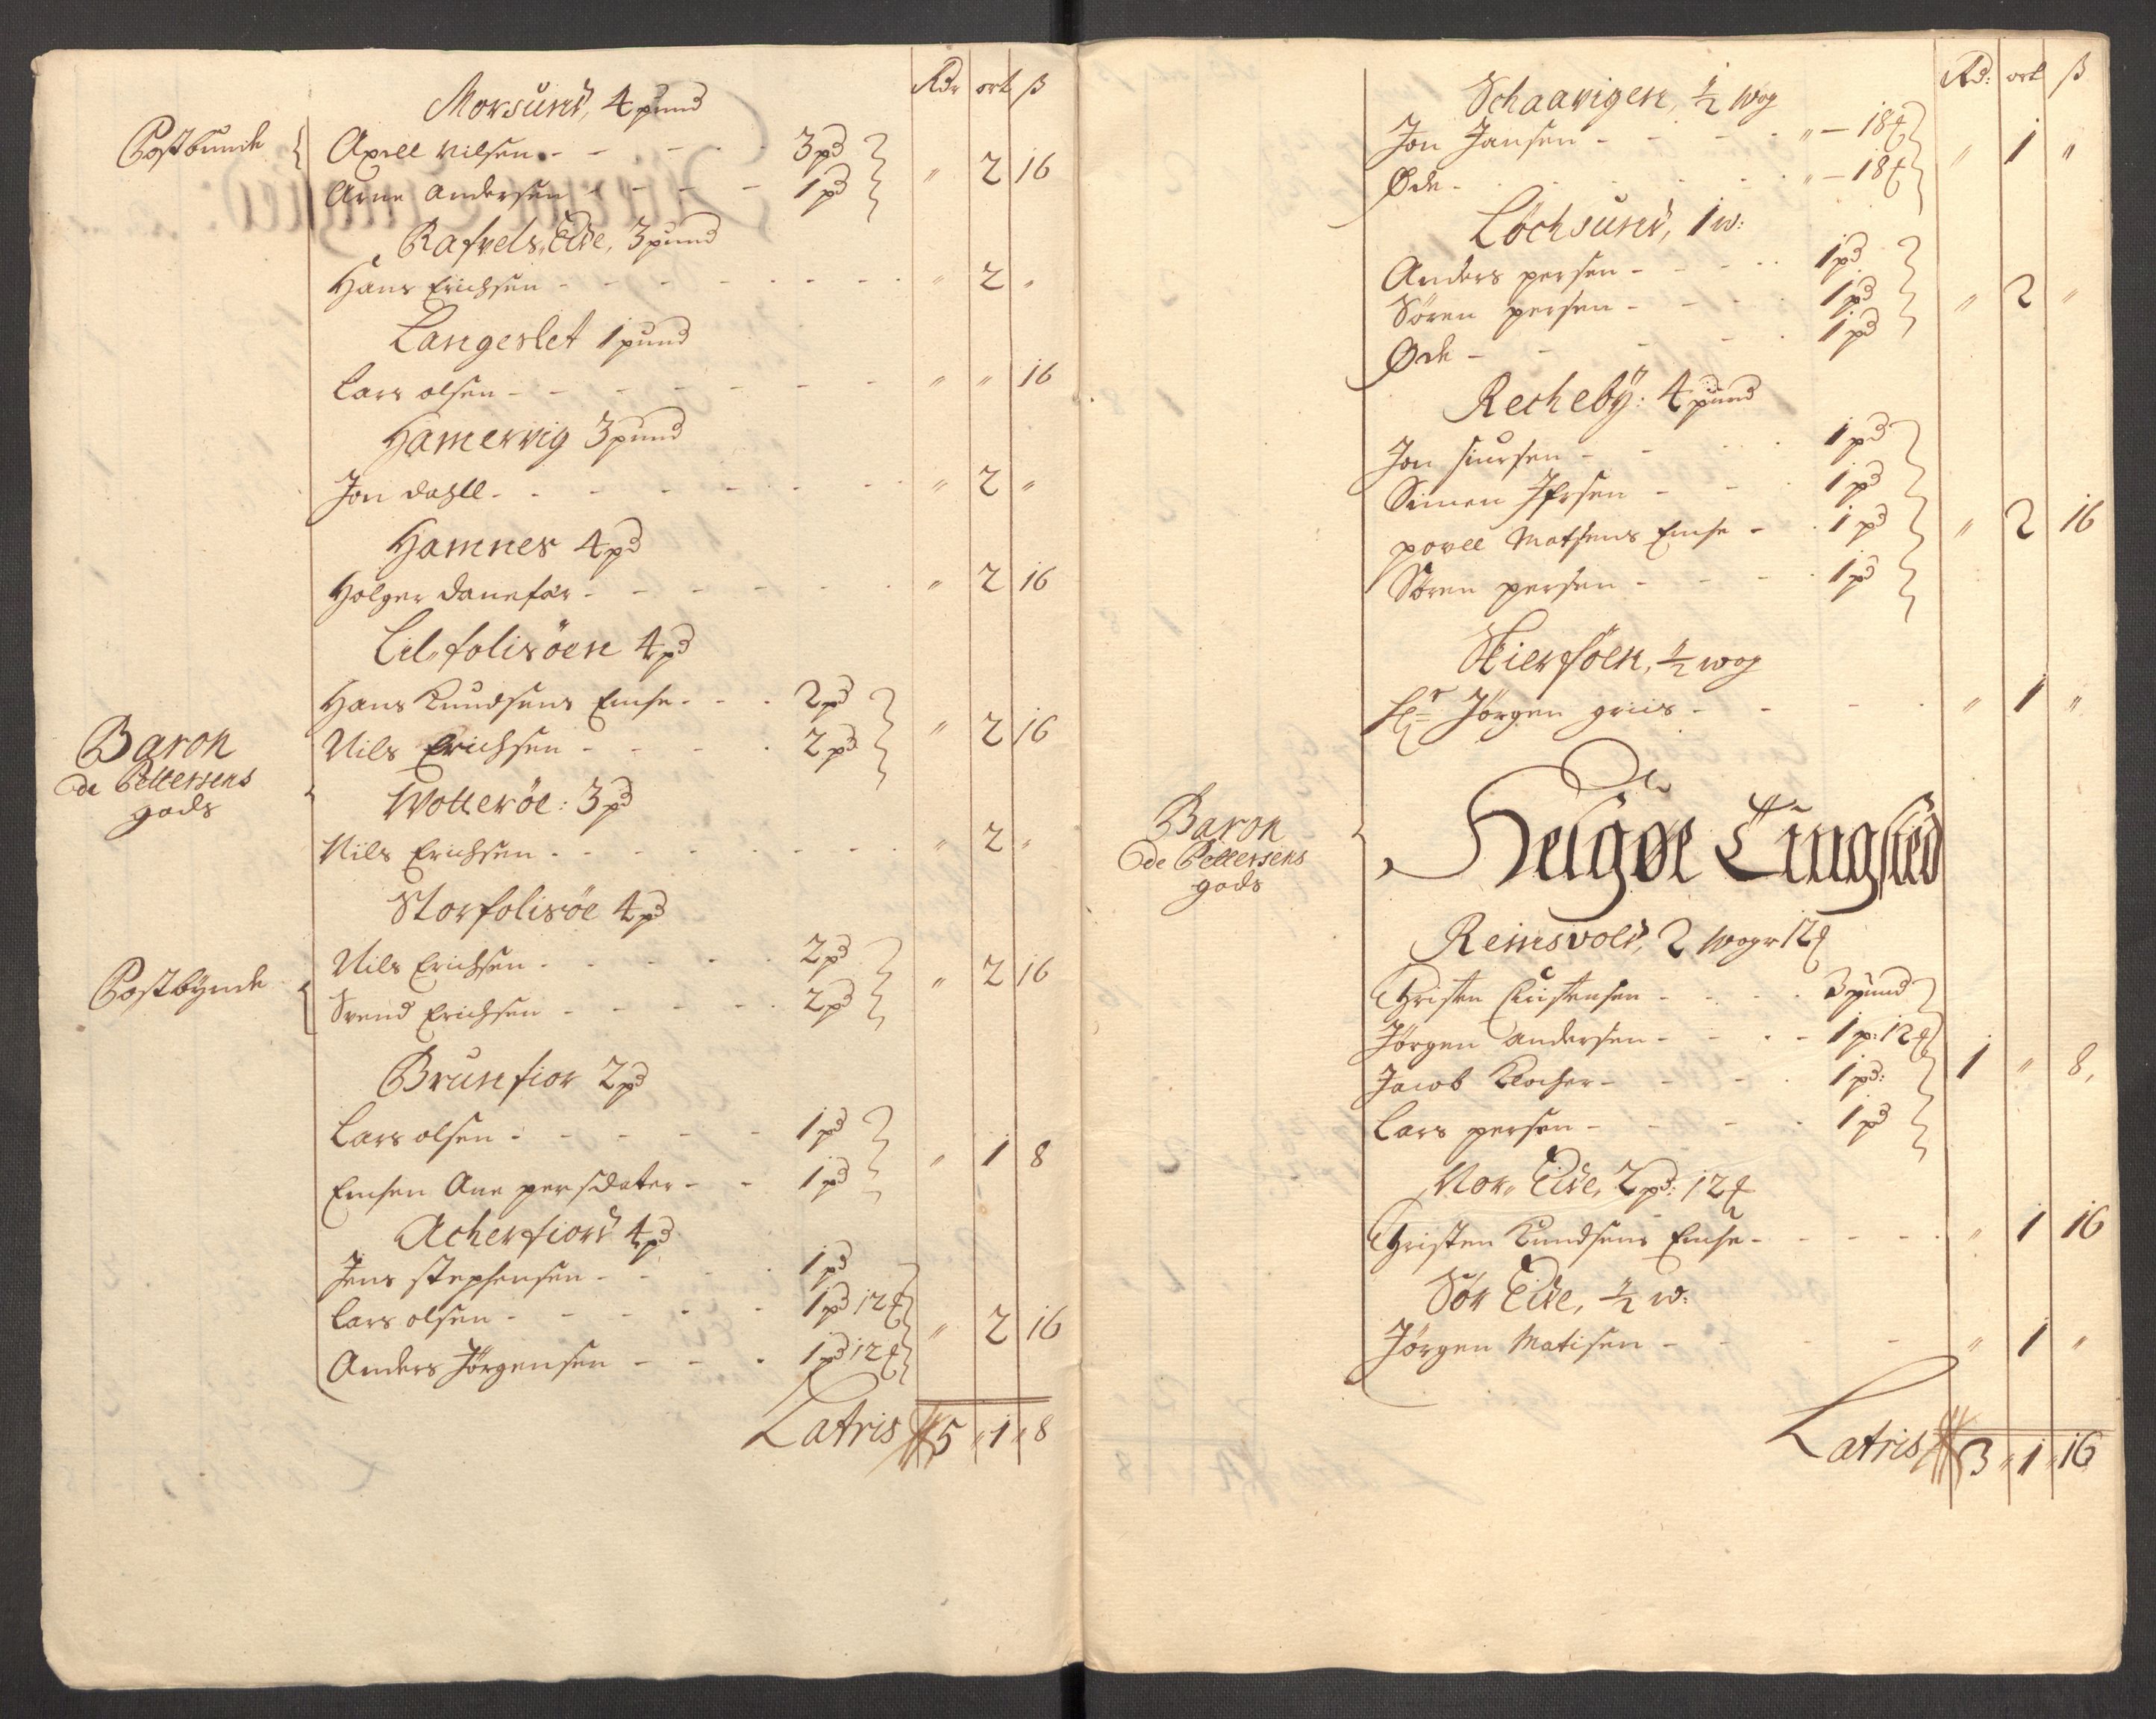 Rdr ort ß
Morsund, 4 pund
Postbunde
Axell Nilsen - - - 3 pd
Arne Andersen - - - 1 pd " 2 16
Rafvels Eide, 3 pund
Hans Erichsen - - - " 2 "
Langeslet 1 pund
Lars olsen - - - " " 16
Hamervig 3 pund
Jon dahll - - - " 2 "
Hamnes 4 pd
Holger Danefær - - - " 2 16
Lil folisöen 4 pd
Hans Knudsens Enche - - 2 pd
Nils Erichsen - - - 2 pd " 2 16
Baron
de Pettersens
gods
Wotteröe: 3 pd
Nils Erichsen - - - " 2 "
Storfolisöe 4 pd
Postbynde
Nils Erichsen - - - 2 pd
Svend Erichsen - - - 2 pd " 2 16
Brunfior 2 pd
Lars olsen - - - 1 pd
Enchen Ane persdater - - 1 pd " 1 8
Acherfiord 4 pd
Jens Stephensen - - - 1 pd
Lars olsen - - - 1 pd 12
Anders Jörgensen - - - 1 pd 12 " 2 16
Latris 5 " 1 " 8
Rd: ort ß
Schaavigen, 1/2 Wog
Jon Jansen - - - " - 18
Øde - - - " - 18 " 1 "
Löchsund, 1 w:
Anders persen - - - 1 pd
Sören persen - - - 1 pd
Øde - - - 1 pd " 2 "
Recheby: 4 pund
Jon siursen - - - 1 pd
Simen Ifrsen - - - 1 pd
povel Matsens Enche - 1 pd
Sören persen - - - 1 pd " 2 16
Skierföen, 1/2 wog
Hr Jörgen griis - - - " 1 "
Baron
de Pettersens
gods
Helgöe Tingsted
Reinsvold, 2 Wogr 12
Christen Christensen - - - 3 pund
Jörgen andersen - - - 1 p: 12
Jacob Klocher - - - 1 pd:
Lars persen - - - 1 pd 1 " 8,
Nor Eide, 2 pd: 12
Christen Knudsens Enche - - - " 1 16
Sör Eide, 1/2 w:
Jörgen Matisen - - - " 1 "
Latris 3 " 1 " 16